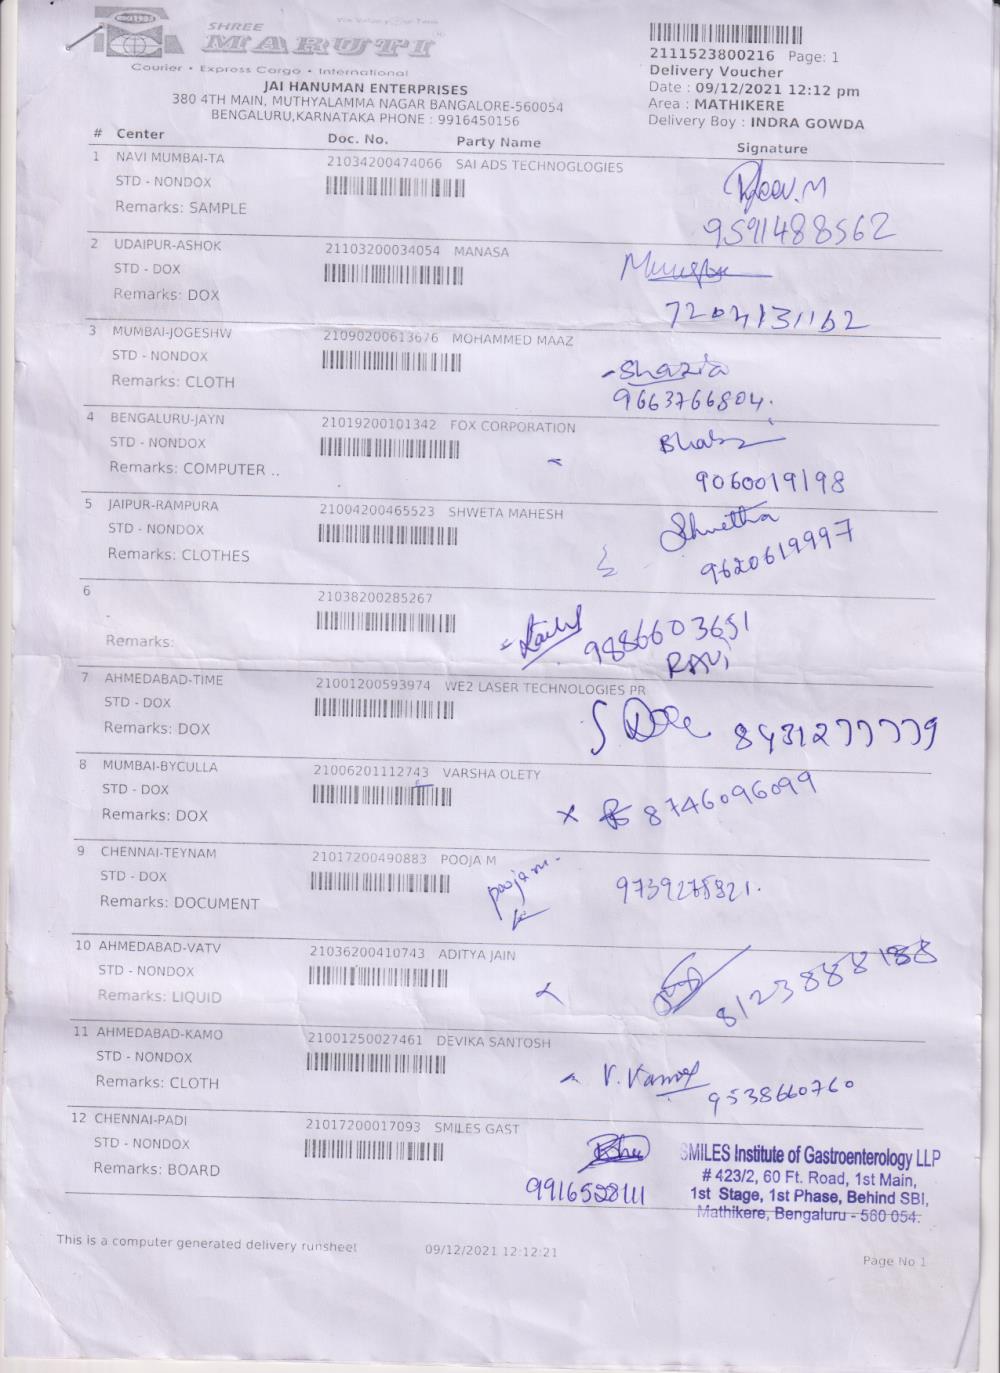 SHREE
MARUTI
Courier • Express Cargo • International
2111523800216 Page: 1
Delivery Voucher
Date : 09/12/2021 12:12 pm
Area : MATHIKERE
Delivery Boy : INDRA GOWDA
JAI HANUMAN ENTERPRISES
380 4TH MAIN, MUTHYALAMMA NAGAR BANGALORE-560054
BENGALURU,KARNATAKA PHONE : 9916450156
# Center Doc. No. Party Name Signature
1 NAVI MUMBAI-TA 21034200474066 SAI ADS TECHNOGLOGIES
STD - NONDOX
Remarks: SAMPLE
9591488562
2 UDAIPUR-ASHOK 21103200034054 MANASA
STD - DOX
Remarks: DOX
7204131162
3 MUMBAI-JOGESHW 21090200613676 MOHAMMED MAAZ
STD - NONDOX
Remarks: CLOTH
Shazia
9663766804.
4 BENGALURU-JAYN 21019200101342 FOX CORPORATION
STD - NONDOX
Remarks: COMPUTER ..
9060019198
5 JAIPUR-RAMPURA 21004200465523 SHWETA MAHESH
STD - NONDOX
Remarks: CLOTHES
Shwetha
9620619997
6 21038200285267
Remarks:
9886603651
RAVi
7 AHMEDABAD-TIME 21001200593974 WE2 LASER TECHNOLOGIES PR
STD - DOX
Remarks: DOX
8431277779
8 MUMBAI-BYCULLA 21006201112743 VARSHA OLETY
STD - DOX
Remarks: DOX
8746096099
9 CHENNAI-TEYNAM 21017200490883 POOJA M
STD - DOX
Remarks: DOCUMENT
pooja m.
10 AHMEDABAD-VATV 21036200410743 ADITYA JAIN
STD - NONDOX
Remarks: LIQUID
8123888188
11 AHMEDABAD-KAMO 21001250027461 DEVIKA SANTOSH
STD - NONDOX
Remarks: CLOTH
9538660760
12 CHENNAI-PADI 21017200017093 SMILES GAST
STD - NONDOX
Remarks: BOARD
9916528111
SMILES Institute of Gastroenterology LLP
# 423/2, 60 Ft. Road, 1st Main,
1st Stage, 1st Phase, Behind SBI,
Mathikere, Bengaluru - 560 054.
This is a computer generated delivery runsheet 09/12/2021 12:12:21
Page No 1